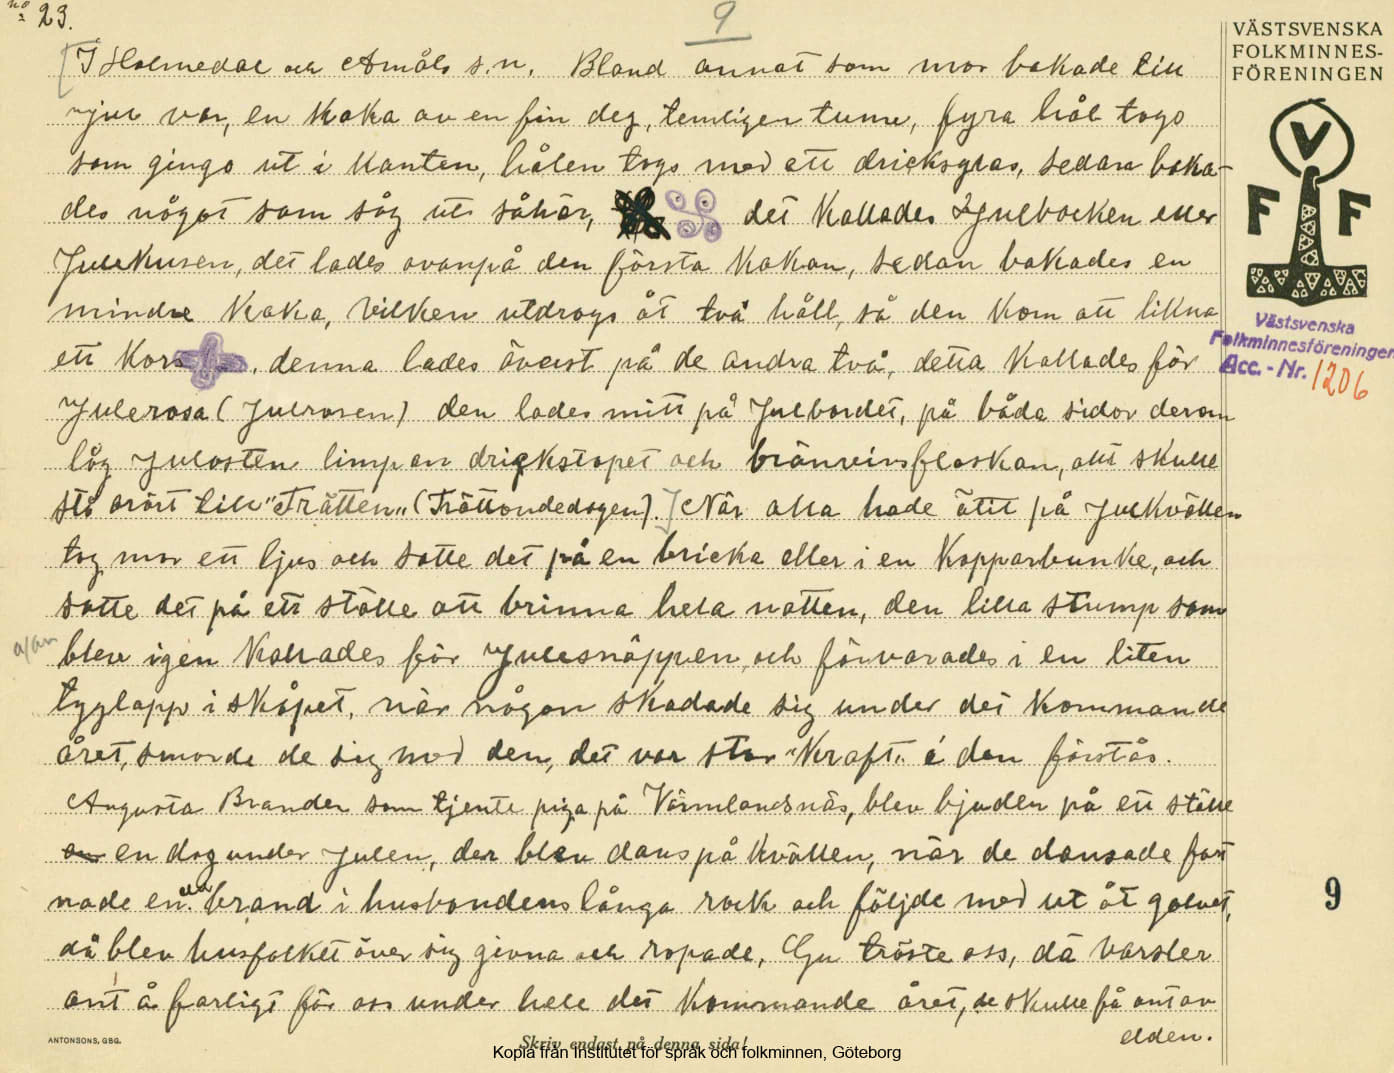 no 23.
9
VÄSTSVENSKA
FOLKMINNES-
FÖRENINGEN
V
F F
[I Holmedal och Åmåls s.n. Bland annat som mor bakade till
jul var, en kaka av en fin deg, temligen tunn, fyra hål togs
som gingo ut i kanten, hålen togs med ett dricksglas, sedan baka-
des något som såg ut såhär, det kallades Julbocken eller
Julekusen, det lades ovanpå den första kakan, sedan bakades en
mindre kaka, vilken utdrogs åt två håll, så den kom att likna
ett kors, denna lades överst på de andra två, detta kallades för
Julerosa (Julrosen) den lades mitt på Julbordet, på båda sidor derom
låg Julosten limpan drickstopet och bränvinsflaskan, allt skulle
stå orört till "Trätten" (Trättondedagen).] När alla hade ätit på Julkvällen
tog mor ett ljus och satte det på en bricka eller i en kopparbunke, och
satte det på ett ställe att brinna hela natten, den lilla stump som
blev igen kallades för Julesnäppen, och förvarades i en liten
tyglapp i skåpet, när någon skadade sig under det kommande
året, smorde de sig med den, det var stor "Kraft" i den förstås.
Augusta Brander som tjente piga på Värmlandsnäs, blev bjuden på ett ställe
en dag under Julen, der blev dans på kvällen, när de dansade fast
nade en eldbrand i husbondens långa rock och följde med ut åt golvet,
då blev husfolket över sig givna och ropade, Gu tröste oss, dä varsler
ont å farligt för oss under hele det kommande året, de skulle få ont av
elden.
Västsvenska
Folkminnesföreningen
Acc. - Nr. 1206
9
ANTONSONS, GBG.
Skriv endast på denna sida!
Kopia från Institutet för språk och folkminnen, Göteborg